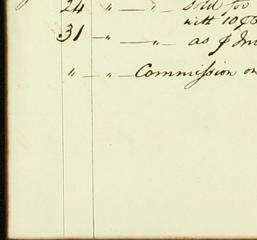 24 " — " — Sold for
with 10 pC
31 " — " — as p Inv
" — " — Commission on